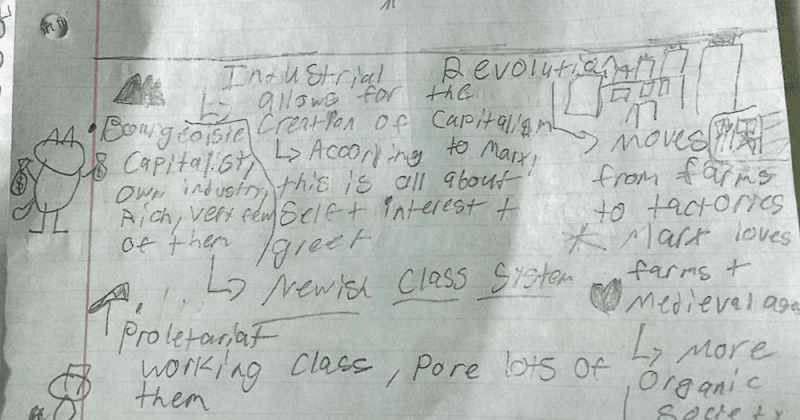 Industrial Revolution
↳ allows for the
Creation of Capitalism
↳ According to Marx,
this is all about
Self interest +
greet
• Bourgeoisie
Capitalist,
own industry,
Rich, very few
of them
↳ Newish Class System
↳ moves
from farms
to factories
* Marx loves
farms +
Medieval age
↳ More
Organic
Society
Proletariat
working class, Pore lots of
them